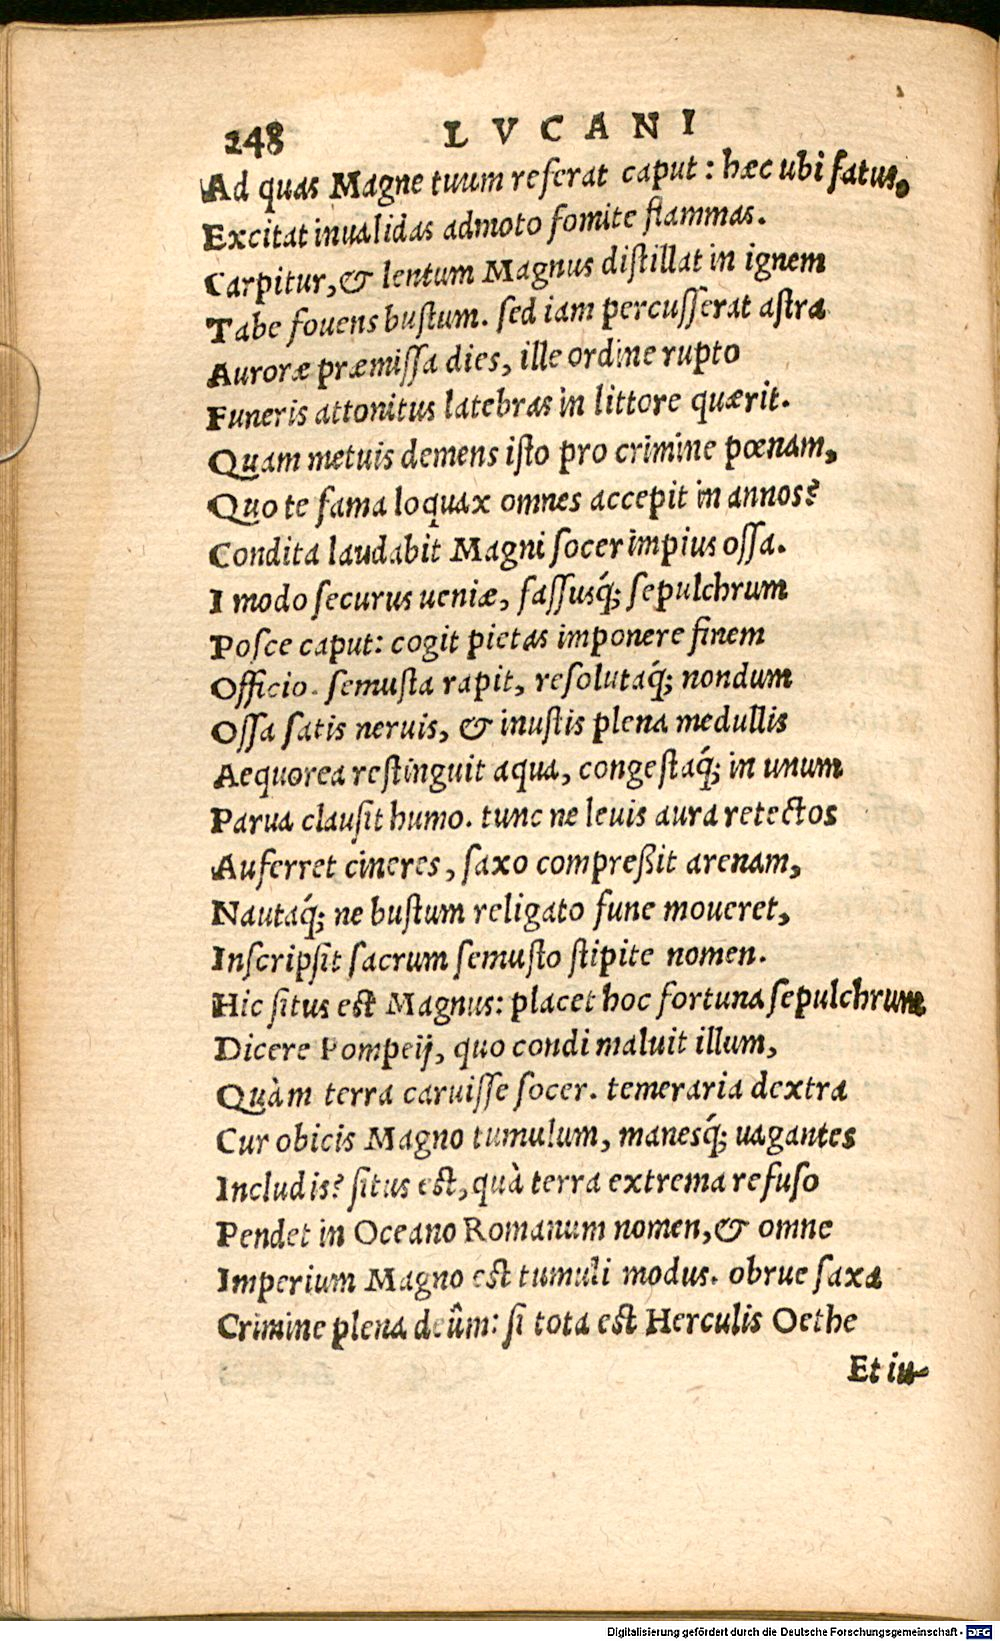 248 LVCANI
Ad quas Magne tuum referat caput: hæc ubi fatus,
Excitat inualidas admoto fomite flammas.
Carpitur, & lentum Magnus distillat in ignem
Tabe fouens bustum. sed iam percusserat astra
Auroræ præmissa dies, ille ordine rupto
Funeris attonitus latebras in littore quærit.
Quam metuis demens isto pro crimine pœnam,
Quo te fama loquax omnes accepit in annos?
Condita laudabit Magni socer impius ossa.
I modo securus ueniæ, fassusq́; sepulchrum
Posce caput: cogit pietas imponere finem
Officio. semusta rapit, resolutaq́; nondum
Ossa satis neruis, & inustis plena medullis
Aequorea restinguit aqua, congestaq́; in unum
Parua clausit humo. tunc ne leuis aura retectos
Auferret cineres, saxo compreßit arenam,
Nautaq́; ne bustum religato fune moueret,
Inscripsit sacrum semusto stipite nomen.
Hic situs est Magnus: placet hoc fortuna sepulchrum
Dicere Pompeij, quo condi maluit illum,
Quàm terra caruisse socer. temeraria dextra
Cur obicis Magno tumulum, manesq́; uagantes
Includis? situs est, quà terra extrema refuso
Pendet in Oceano Romanum nomen, & omne
Imperium Magno est tumuli modus. obrue saxa
Crimine plena deûm: si tota est Herculis Oethe
Et iu-
Digitalisierung gefördert durch die Deutsche Forschungsgemeinschaft - DFG